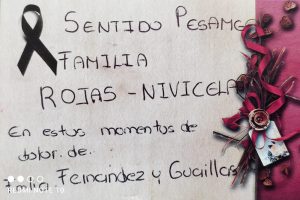 SENTIDO PESAME
FAMILIA
ROJAS - NIVICELA
En estos momentos de
dolor. de..
Fernandez y Guaillas
REDMI NOTE 10